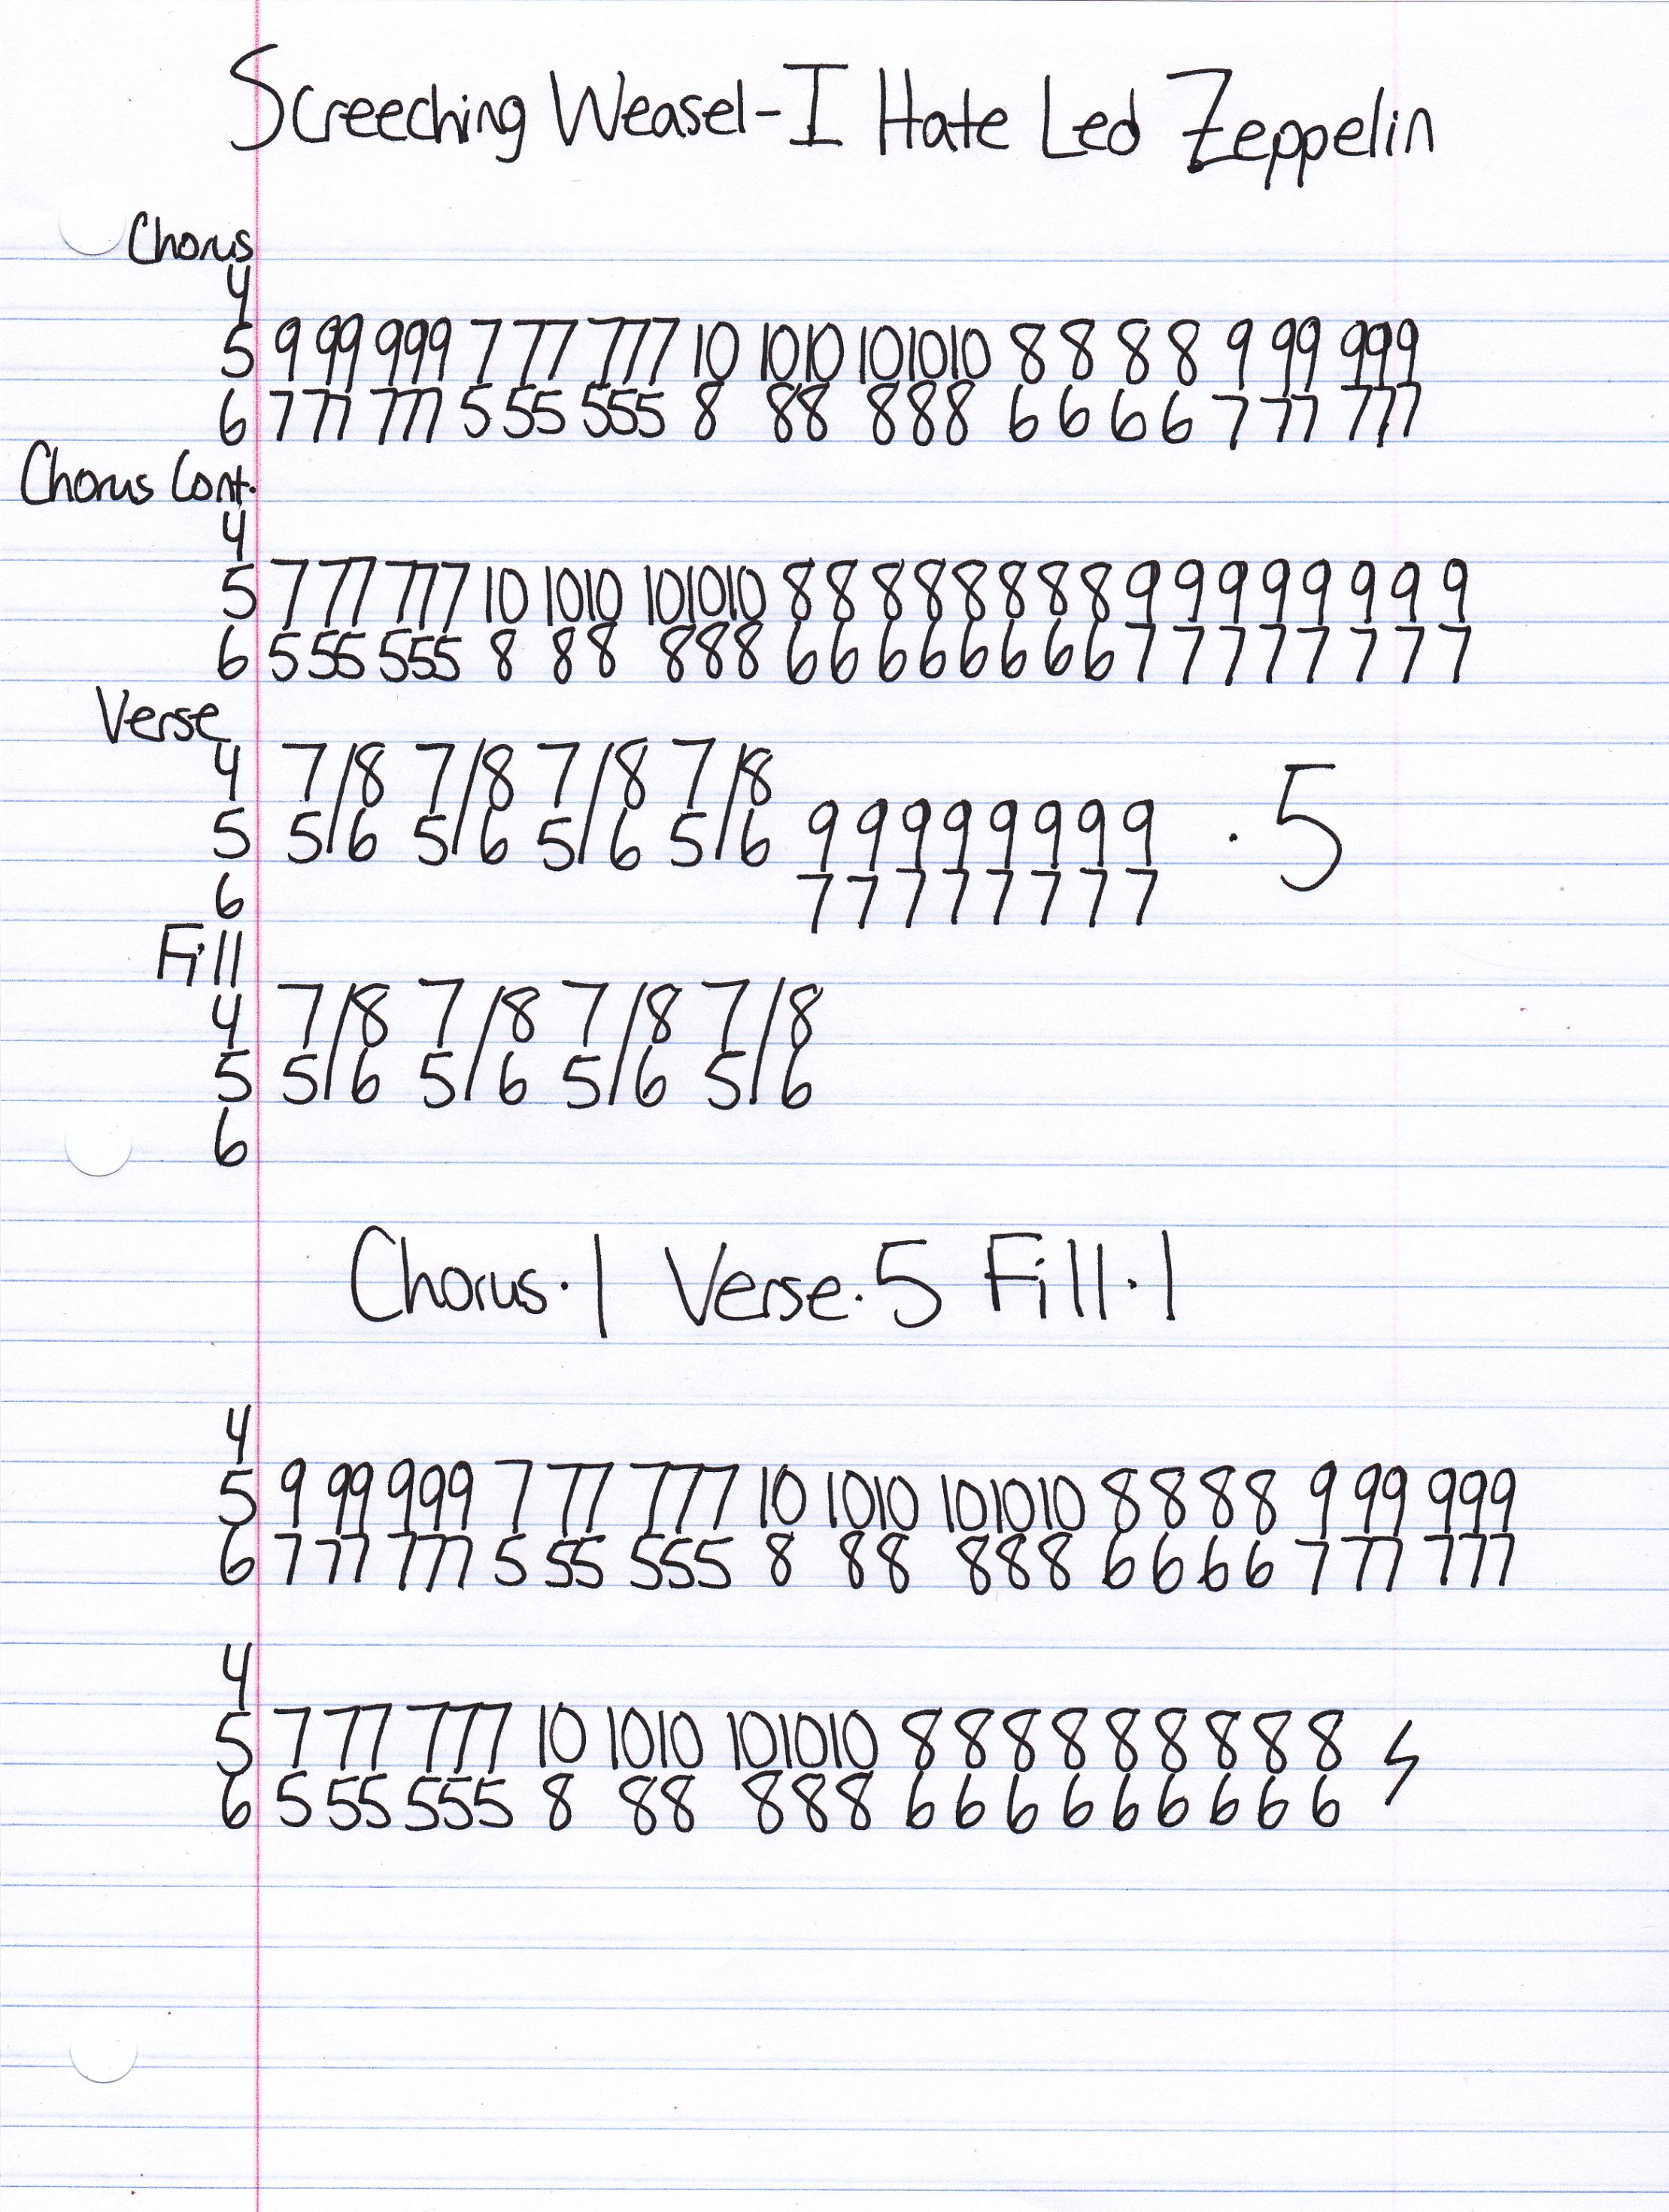 Screeching Weasel-I Hate Led Zeppelin
Chorus
4
5 9 99 999 7 77 777 10 1010 101010 8 8 8 8 9 99 999
6 7 77 777 5 55 555 8 88 888 6 6 6 6 7 77 777
Chorus Cont.
4
5 7 77 777 10 1010 101010 8 8 8 8 8 8 8 8 9 9 9 9 9 9 9 9
6 5 55 555 8 88 888 6 6 6 6 6 6 6 6 7 7 7 7 7 7 7 7
Verse
4 7/8 7/8 7/8 7/8
5 5/6 5/6 5/6 5/6 9 9 9 9 9 9 9 9 · 5
6 7 7 7 7 7 7 7 7
Fill
4 7/8 7/8 7/8 7/8
5 5/6 5/6 5/6 5/6
6
Chorus·1 Verse·5 Fill·1
4
5 9 99 999 7 77 777 10 1010 101010 8 8 8 8 9 99 999
6 7 77 777 5 55 555 8 88 888 6 6 6 6 7 77 777
4
5 7 77 777 10 1010 101010 8 8 8 8 8 8 8 8 8
6 5 55 555 8 88 888 6 6 6 6 6 6 6 6 6